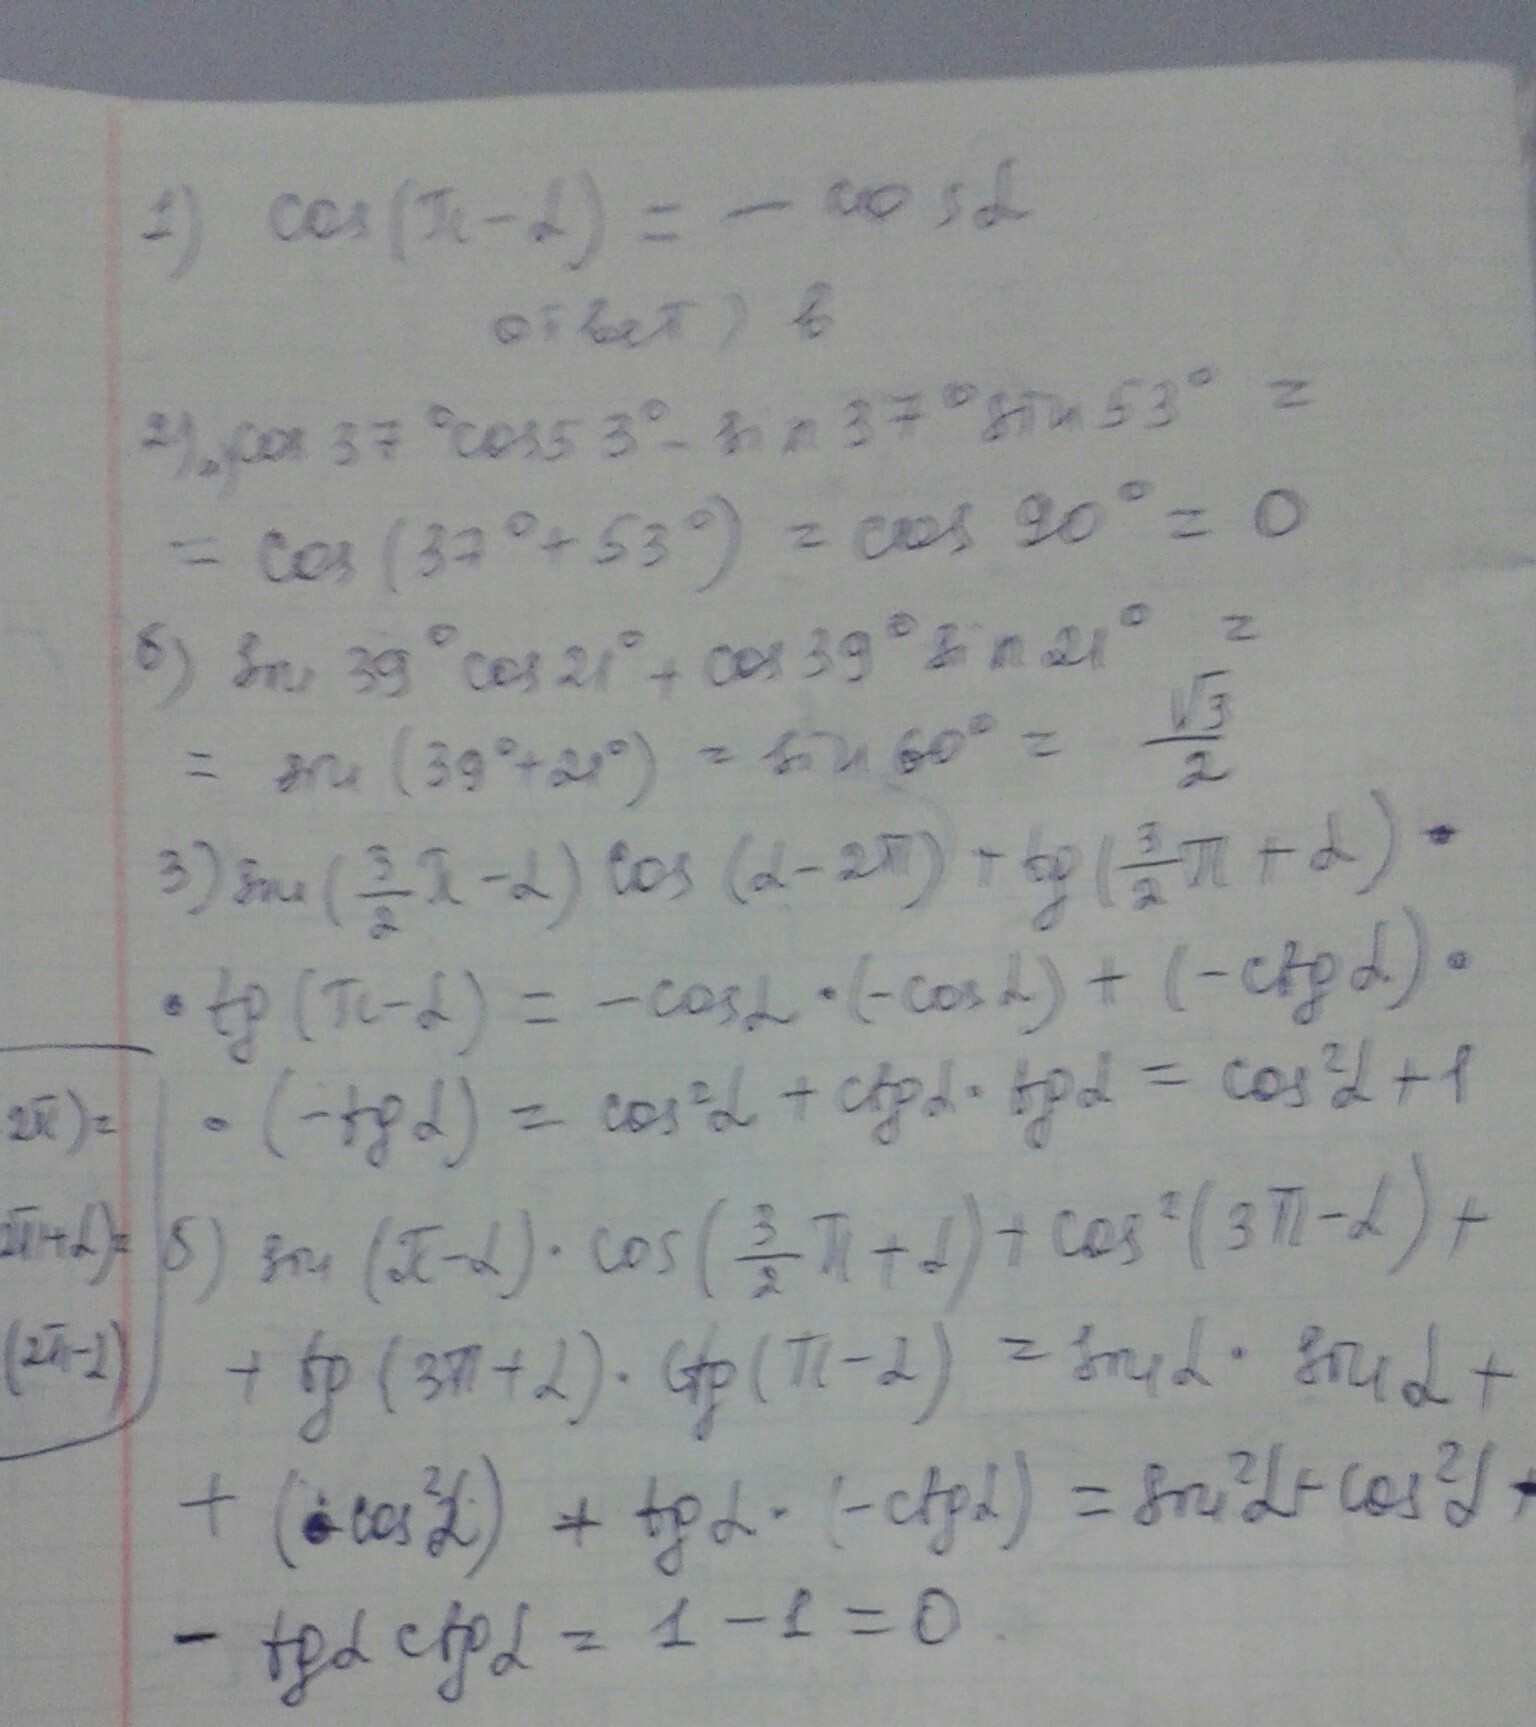 1) cos(π-α) = - cosα
ответ) в
2) cos 37° cos 53° - sin 37° sin 53° =
= cos (37° + 53°) = cos 90° = 0
б) sin 39° cos 21° + cos 39° sin 21° =
= sin (39° + 21°) = sin 60° = √3/2
3) sin (3/2 π - α) cos (α - 2π) + tg (3/2 π + α) ·
· tg (π - α) = - cosα · (-cosα) + (-ctgα) ·
· (-tgα) = cos²α + ctgα · tgα = cos²α + 1
2π) =
2π+α) =
(2π-α)
б) sin (π-α) · cos (3/2 π + α) + cos² (3π-α) +
+ tg (3π+α) · ctg (π-α) = sinα · sinα +
+ (cos²α) + tgα · (-ctgα) = sin²α + cos²α +
- tgα ctgα = 1 - 1 = 0